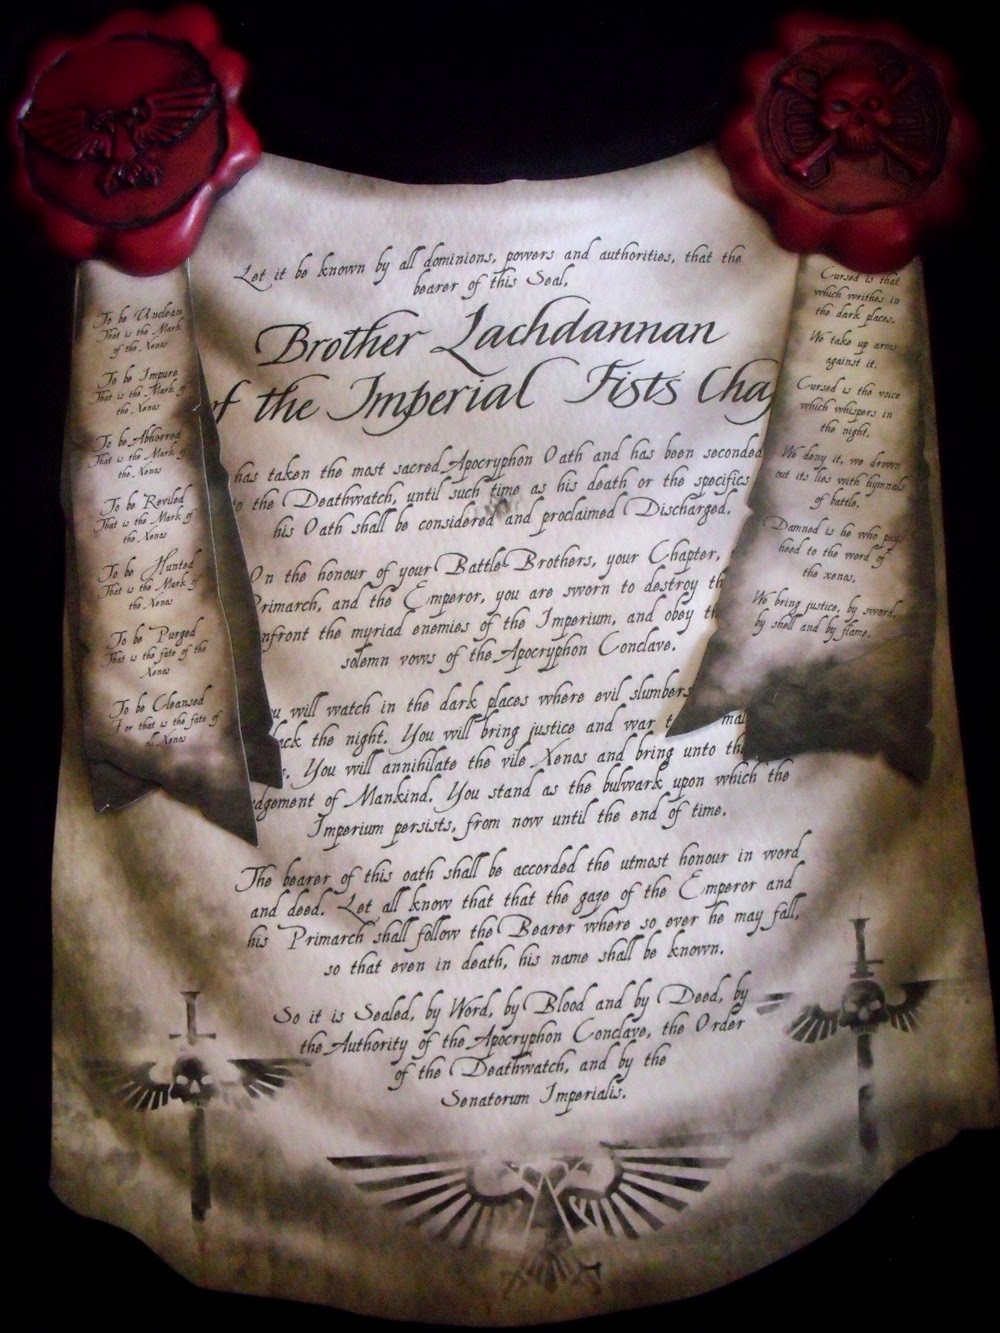 Let it be known by all dominions, powers and authorities, that the
bearer of this Seal,
Brother Lachdannan
of the Imperial Fists Cha
has taken the most sacred Apocryphon Oath and has been seconded
to the Deathwatch, until such time as his death or the specifics
his Oath shall be considered and proclaimed Discharged.
On the honour of your Battle Brothers, your Chapter,
Primarch, and the Emperor, you are sworn to destroy th
nfront the myriad enemies of the Imperium, and obey th
solemn vows of the Apocryphon Conclave.
u will watch in the dark places where evil slumbers
ack the night. You will bring justice and war t mal
s. You will annihilate the vile Xenos and bring unto th
udgement of Mankind. You stand as the bulwark upon which the
Imperium persists, from now until the end of time.
The bearer of this oath shall be accorded the utmost honour in word
and deed. Let all know that that the gaze of the Emperor and
his Primarch shall follow the Bearer where so ever he may fall,
so that even in death, his name shall be known.
So it is Sealed, by Word, by Blood and by Deed, by
the Authority of the Apocryphon Conclave, the Order
of the Deathwatch, and by the
Senatorum Imperialis.
To be Unclean
That is the Mark
of the Xenos
To be Impure
That is the Mark of
the Xenos
To be Abhorred
That is the Mark of
the Xenos
To be Reviled
That is the Mark of
the Xenos
To be Hunted
That is the Mark of
the Xenos
To be Purged
That is the fate of the
Xenos
To be Cleansed
For that is the fate of
all Xenos
Cursed is that
which writhes in
the dark places,
We take up arms
against it.
Cursed is the voice
which whispers in
the night,
We deny it, we drown
out its lies with hymnals
of battle.
Damned is he who pays
heed to the word of
the xenos,
We bring justice, by sword,
by shell and by flame.